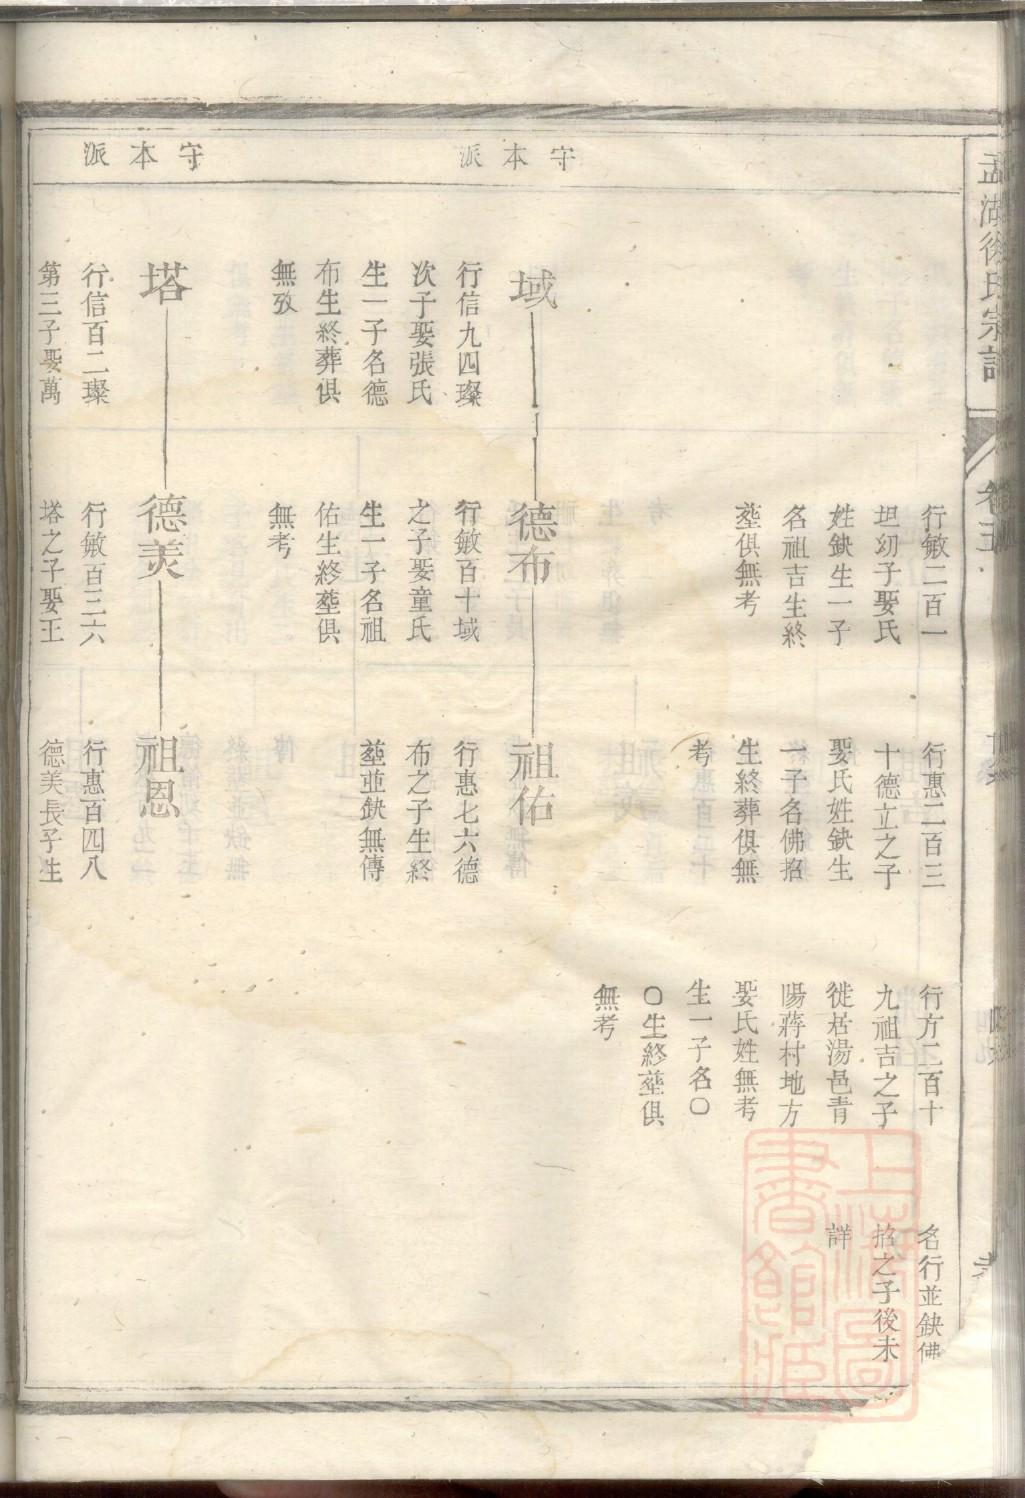 孟湖徐氏宗譜
卷五
守本派
守本派
行敏二百一
坦幼子娶氏
姓缺生一子
名祖吉生終
塟俱無考
行惠二百三
十德立之子
娶氏姓缺生
一子名佛招
生終葬俱無
考
行方二百十
九祖吉之子
徙居湯邑青
陽蔣村地方
娶氏姓無考
生一子名〇
〇生終塟俱
無考
名行並缺佛
招之子後未
詳
域
行信九四璨
次子娶張氏
生一子名德
布生終葬俱
無攷
德布
行敏百十域
之子娶童氏
生一子名祖
佑生終塟俱
無考
祖佑
行惠七六德
布之子生終
塟並缺無傳
塔
行信百二璨
第三子娶萬
德美
行敏百三六
塔之子娶王
祖恩
行惠百四八
德美長子生
上海圖書館藏